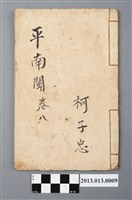 平南閩卷八
柯子忠
2013.013.0009